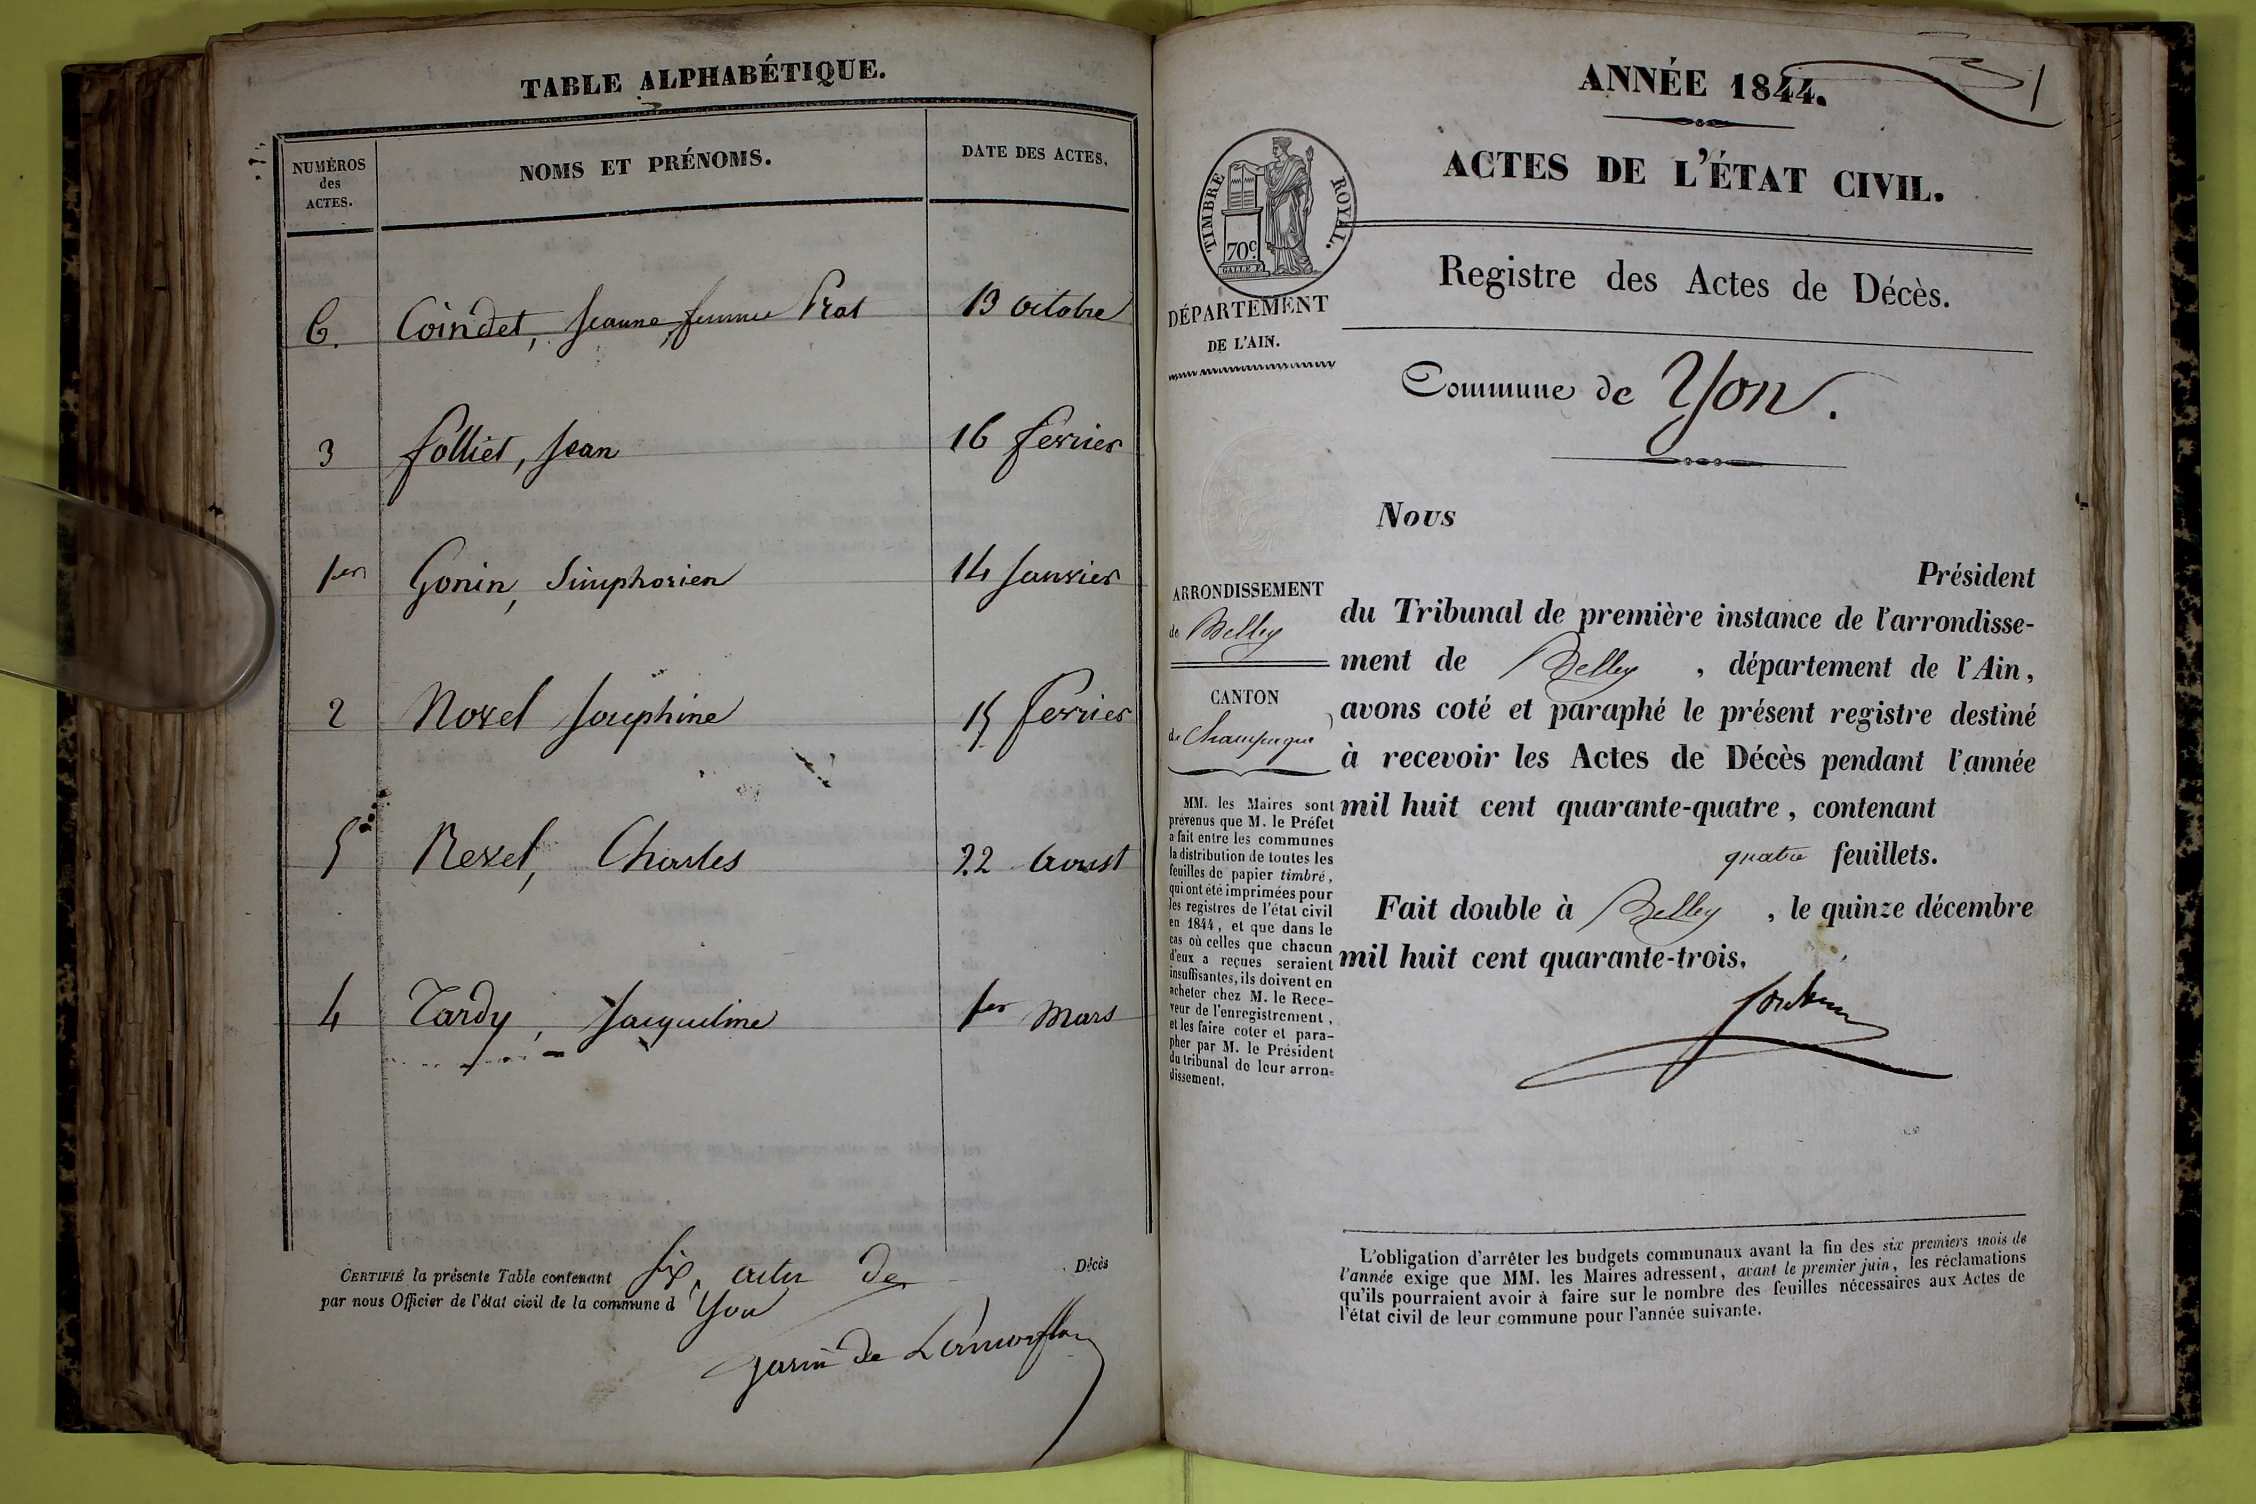 TABLE ALPHABÉTIQUE.
NUMÉROS des ACTES.
NOMS ET PRÉNOMS.
DATE DES ACTES.
6. Coindet, Jeanne, femme Prat 13 octobre
3 folliet, Jean 16 fevrier
1er Gonin, Simphorien 14 Janvier
2 Novel Josephine 15 fevrier
5 Revel, Charles 22 Aoust
4 Tardy, Jacqueline 1er Mars
CERTIFIÉ la présente Table contenant six actes de Décès
par nous Officier de l'état civil de la commune d'Yon
garin de
ANNÉE 1844.
31
ACTES DE L'ÉTAT CIVIL.
TIMBRE ROYAL.
70c
GALLE F.
DÉPARTEMENT
DE L'AIN.
Registre des Actes de Décès.
Commune de Yon.
ARRONDISSEMENT
de Belley
CANTON
de Champagne
MM. les Maires sont
prévenus que M. le Préfet
a fait entre les communes
la distribution de toutes les
feuilles de papier timbré,
qui ont été imprimées pour
les registres de l'état civil
en 1844, et que dans le
cas où celles que chacun
d'eux a reçues seraient
insuffisantes, ils doivent en
acheter chez M. le Rece-
veur de l'enregistrement,
et les faire coter et para-
pher par M. le Président
du tribunal de leur arron-
dissement.
Nous
Président
du Tribunal de première instance de l'arrondisse-
ment de Belley, département de l'Ain,
avons coté et paraphé le présent registre destiné
à recevoir les Actes de Décès pendant l'année
mil huit cent quarante-quatre, contenant
quatre feuillets.
Fait double à Belley, le quinze décembre
mil huit cent quarante-trois.
L'obligation d'arrêter les budgets communaux avant la fin des six premiers mois de
l'année exige que MM. les Maires adressent, avant le premier juin, les réclamations
qu'ils pourraient avoir à faire sur le nombre des feuilles nécessaires aux Actes de
l'état civil de leur commune pour l'année suivante.